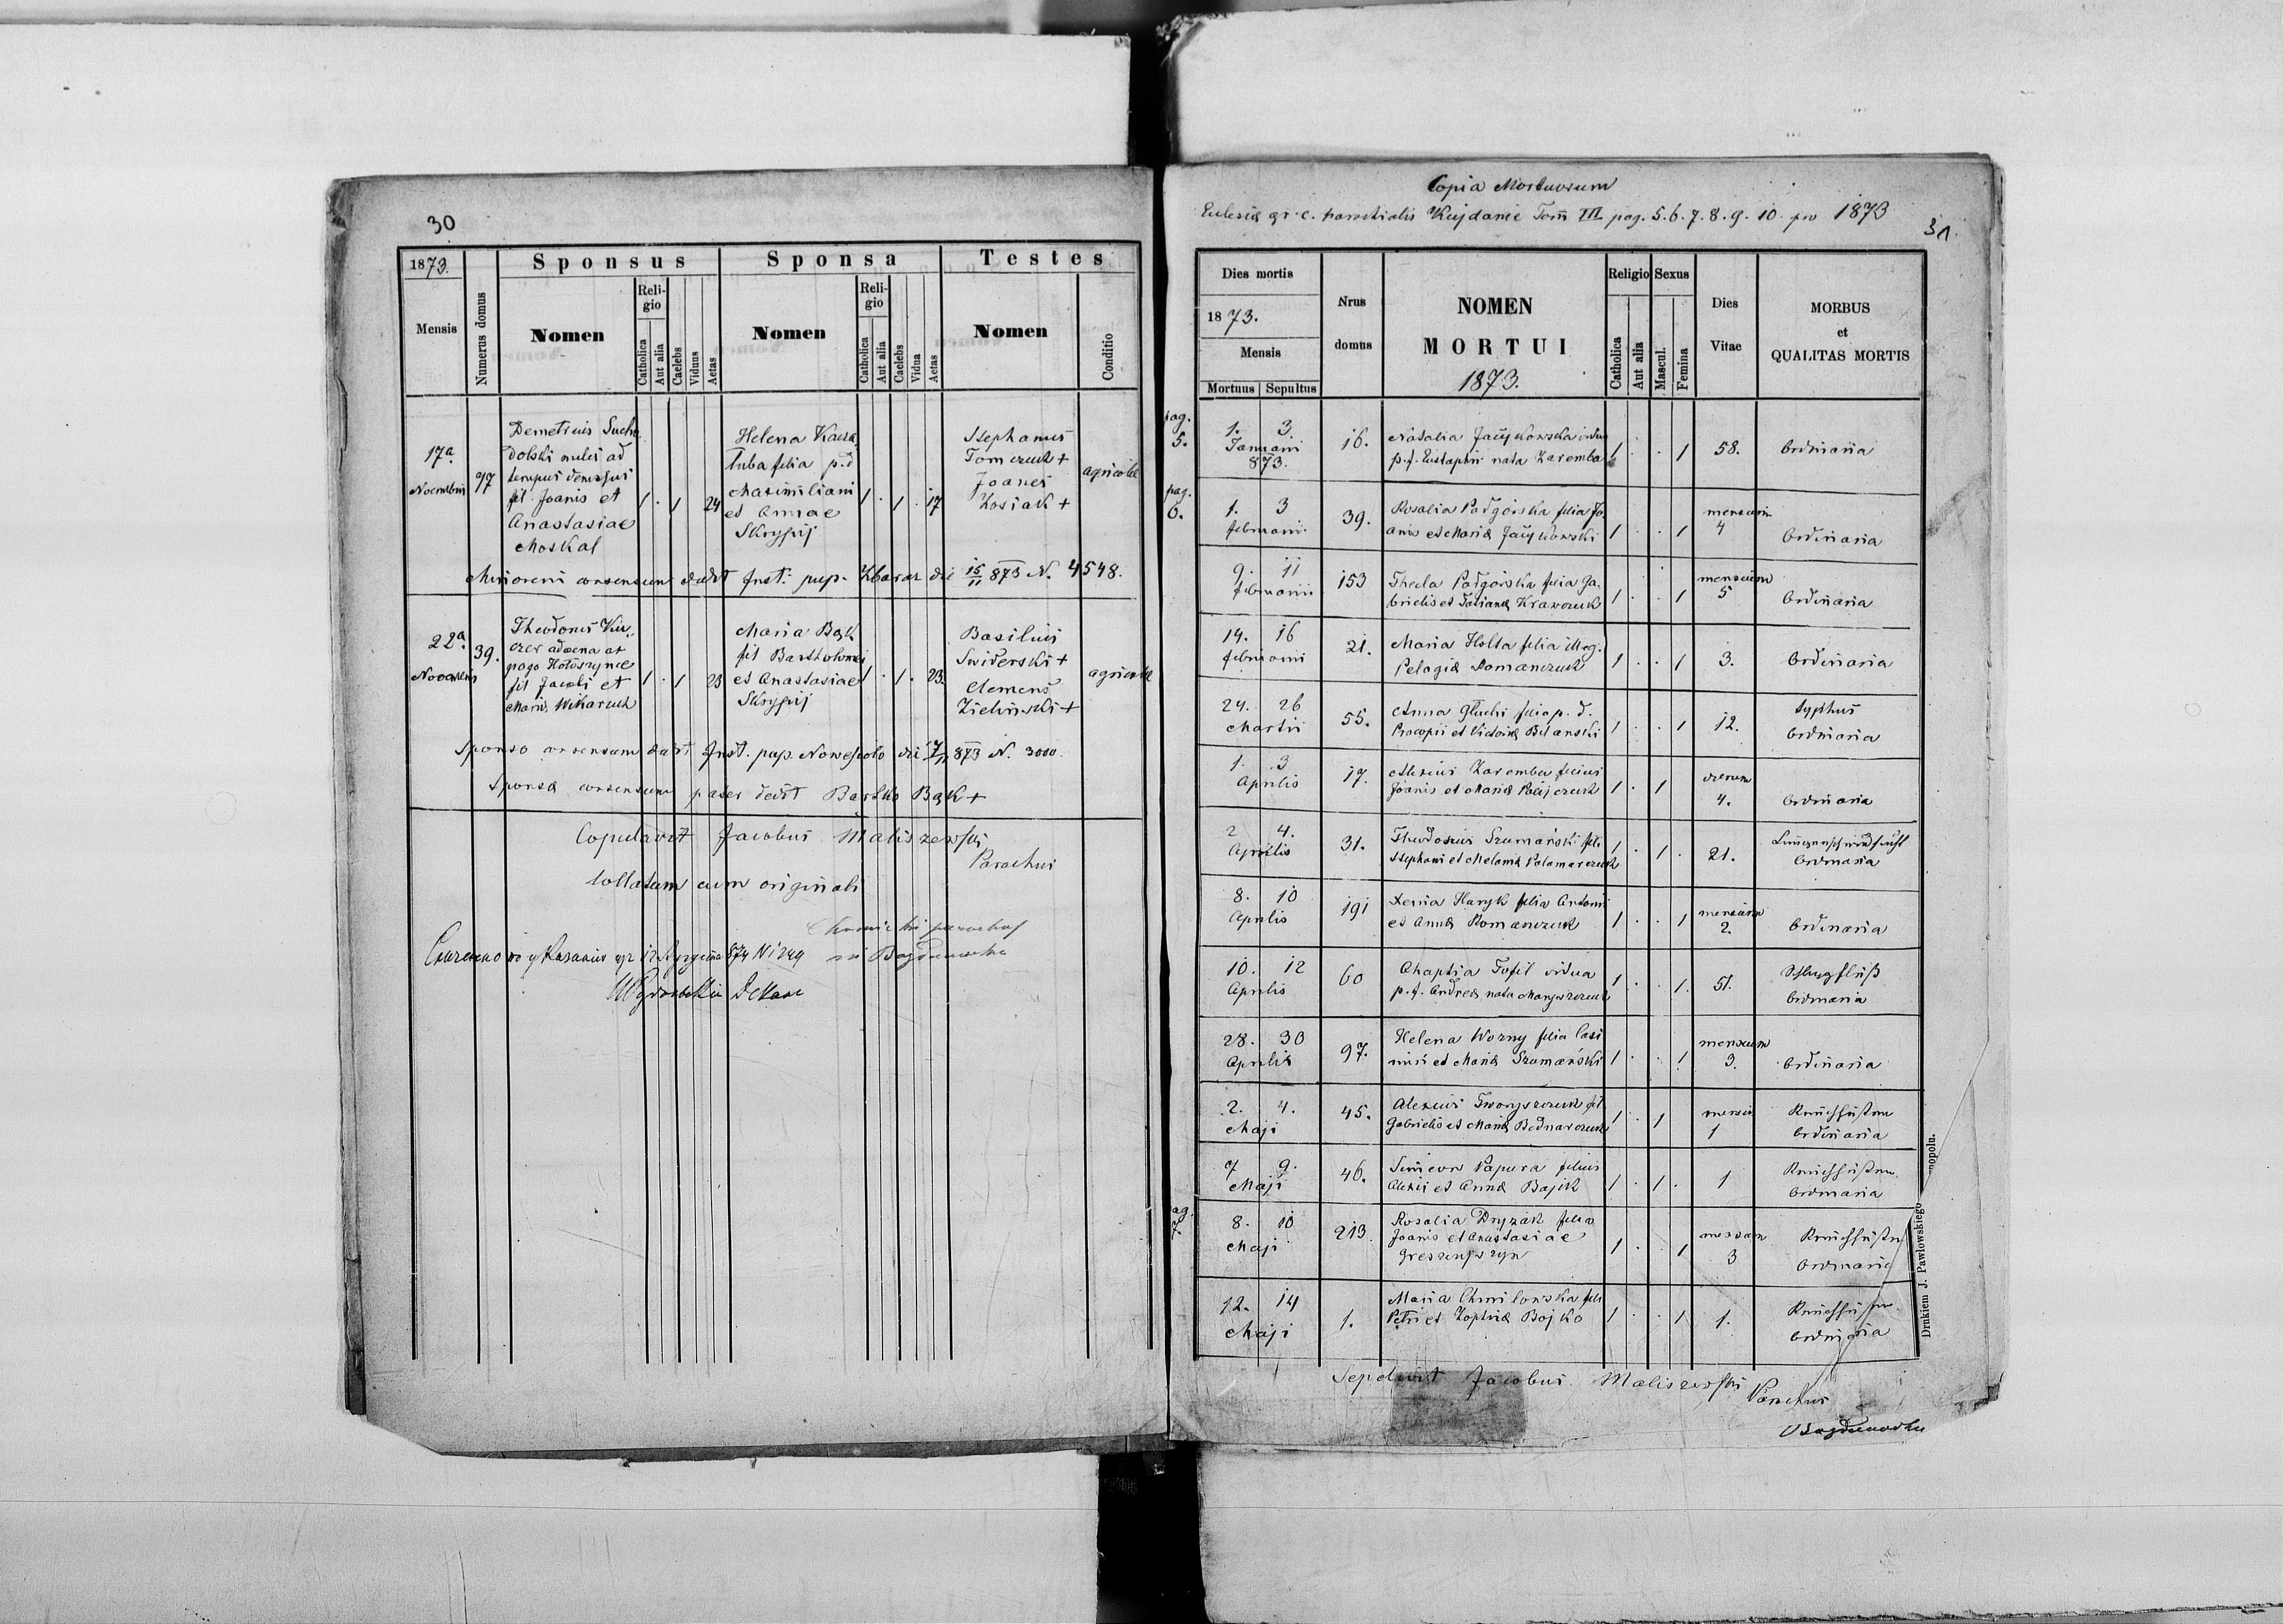 30
1873.
Mensis
Numerus domus
Sponsus
Nomen
Reli-
gio
Catholica
Aut alia
Caelebs
Viduus
Aetas
Sponsa
Nomen
Reli-
gio
Catholica
Aut alia
Caelebs
Vidua
Aetas
Testes
Nomen
Conditio
17a
Novembris
97
Demetrius Sucho
dolski miles ad
tempus demissus
fil. Joanis et
Anastasiae
Moskal
1 . 1 24
Helena Kacza
luba filia p. d
Maximiliani
et Annae
Skrypij
1 . 1 . 17
Stephanus
Tomczuk +
Joanes
Kosiak +
agricolae
Minoreni consensum dedit Inst. pup. Zbaraz die 15/11 873 N. 4548.
22a
Novembris
39.
Theodorus
advena at
pago Hołoszynce
fil Jacobi et
Maria Wikarczuk
1 . 1 23
Maria Bąk
fil Bartholomei
et Anastasiae
Skrypij
1 . 1 . 23.
Basilius
Swiderski +
Clemens
Zieliński +
agricolae
Sponso consensum dedit Inst. pup. Nowesioło die 7/11 873 N. 3000
Sponsa consensum pater dedit Bartko Bąk +
Copulavit Jacobus Maliszewski
Parochus
Collatum cum originali
parochus
in Bogdanowka
Copia Mortuorum
Eclesia gr. c. parochialis Kujdanie Tom III pag. 5. 6. 7. 8. 9. 10. pro 1873
31.
Dies mortis
1873.
Mensis
Mortuus Sepultus
Nrus
domus
NOMEN
MORTUI
1873.
Religio
Catholica
Aut alia
Sexus
Mascul.
Femina
Dies
Vitae
MORBUS
et
QUALITAS MORTIS
pag.
5.
1. 3.
Januarii
873.
16.
Natalia Jacykowska vidua
p. f. Eustaphii nata Zaremba
1 . . 1
58.
Ordinaria
pag.
6.
1. 3
februarii
39.
Rosalia Podgórska filia Jo
anis et Maria Jacykowski
1 . . 1
mensium
4
Ordinaria
9. 11
februarii
153
Thecla Podgórska filia Ga
brielis et Tatiana Krawczuk
1 . . 1
mensium
5
Ordinaria
14. 16
februarii
21.
Maria Holta filia illeg.
Pelagia Romanczuk
1 . . 1
3.
Ordinaria
24. 26
Martii
55.
Anna Głuchi filia p. d.
Procopii et Victoria Bilanski
1 . . 1
12.
typhus
Ordinaria
1. 3
Aprilis
17.
Alexius Zaremba filius
Joanis et Maria
1 . 1
dierum
4.
Ordinaria
2 4.
Aprilis
31.
Theodosius Szumański fili
Stephani et Melania Palamarczuk
1 . 1 .
21.
Lungenschwindsucht
Ordinaria
8. 10
Aprilis
191
Xenia Haryk filia Antonii
et Anna Romanczuk
1 . . 1
mensium
2
Ordinaria
10. 12
Aprilis
60
Ahaphia Tofil vidua
p. f. Andrea nata
1 . . 1.
51.
Schlagfluß
Ordinaria
28. 30
Aprilis
97.
Helena Worny filia Casi
miri et Maria Szumański
1 . . 1
mensium
3.
Ordinaria
2. 4.
Maji
45.
Alexius fil
Gabrielis et Maria Bednarczuk
1 . 1
mensis
1
Keuchhusten
Ordinaria
7 9.
Maji
46.
Simeon Papura filius
Alexii et Anna Bajik
1 . 1 .
1
Keuchhusten
Ordinaria
pag.
7.
8. 10
Maji
213
Rosalia Dryzak filia
Joanis et Anastasiae
1 . . 1
mensium
3
Keuchhusten
Ordinaria
12. 14
Maji
1.
Maria Chmilowska filia
Petri et Zophia Bojko
1 . . 1
1.
Keuchhusten
Ordinaria
Sepelivit Jacobus Maliszewski
Parochus
Bogdanowka
Drukiem J. Pawłowskiego
nopolu.